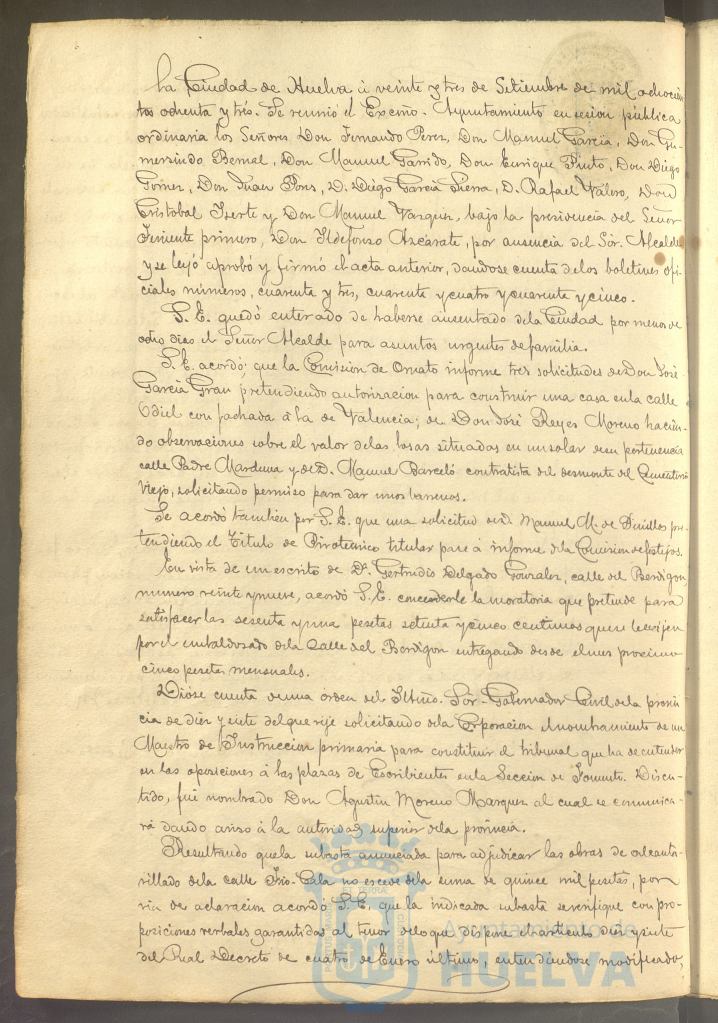 La Ciudad de Huelva á veinte y tres de Setiembre de mil ochocien
tos ochenta y tres. Se reunió el Excmo. Ayuntamiento en sesion pública
ordinaria los Señores Don Fernando Perez, Don Manuel Garcia, Don Gu
mersindo Bernal, Don Manuel Garrido, Don Enrique Pinto, Don Diego
Gomez, Don Juan Pons, D. Diego Garcia Sierra, D. Rafael Valero, Don
Cristobal Iserte y Don Manuel Vazquez, bajo la presidencia del Señor
Teniente primero, Don Ildefonso Azcárate, por ausencia del Sór. Alcalde
y se leyó aprobó y firmó el acta anterior, dandose cuenta de los boletines ofi
ciales números, cuarenta y tres, cuarenta y cuatro y cuarenta y cinco.
S. E. quedó enterado de haberse ausentado de la Ciudad por menos de
ocho dias el Señor Alcalde para asuntos urgentes de familia.
S. E. acordó; que la Comision de Ornato informe tres solicitudes de Don José
Garcia Gran pretendiendo autorizacion para construir una casa en la calle
Odiel con fachada á la de Valencia; de Don José Reyes Moreno hacien
do observaciones sobre el valor de las losas situadas en un solar de su pertenencia
calle Padre Marchena y de D. Manuel Barceló contratista del desmonte del Cementerio
Viejo, solicitando permiso para dar unos barrenos.
Se acordó tambien por S. E. que una solicitud de D. Manuel M. de pre
tendiendo el Título de Pirotecnico titular pase á informe de la Comision de festejos.
En vista de un escrito de Da. Gertrudis Delgado Gonzalez, calle del Berdigon
numero veinte y nueve, acordó S. E. concederle la moratoria que pretende para
satisfacer las sesenta y una pesetas setenta y cinco centimos que se le exijen
por el embaldosado de la Calle del Berdigon entregando desde el mes proximo
cinco pesetas mensuales.
Dióse cuenta de una órden del Iltmo. Sór. Gobernador Civil de la provin
cia de diez y siete del que rije solicitando de la Corporacion el nombramiento de un
Maestro de Instruccion primaria para constituir el tribunal que ha de entender
en las oposiciones á las plazas de Escribientes en la Seccion de Fomento. Discu
tido, fué nombrado Don Agustin Moreno Marquez al cual se comunica
rá dando aviso á la autoridad superior de la provincia.
Resultando que la subasta anunciada para adjudicar las obras de alcanta-
rillado de la calle Tres-Cala no escede de la suma de quince mil pesetas, por
via de aclaracion acordó S. E. que la indicada subasta se verifique con pro-
posiciones verbales garantidas al tenor de lo que dispone el articulo diez y siete
del Real Decreto de cuatro de Enero último, entendiéndose modificado,
Ayuntamiento de
HUELVA